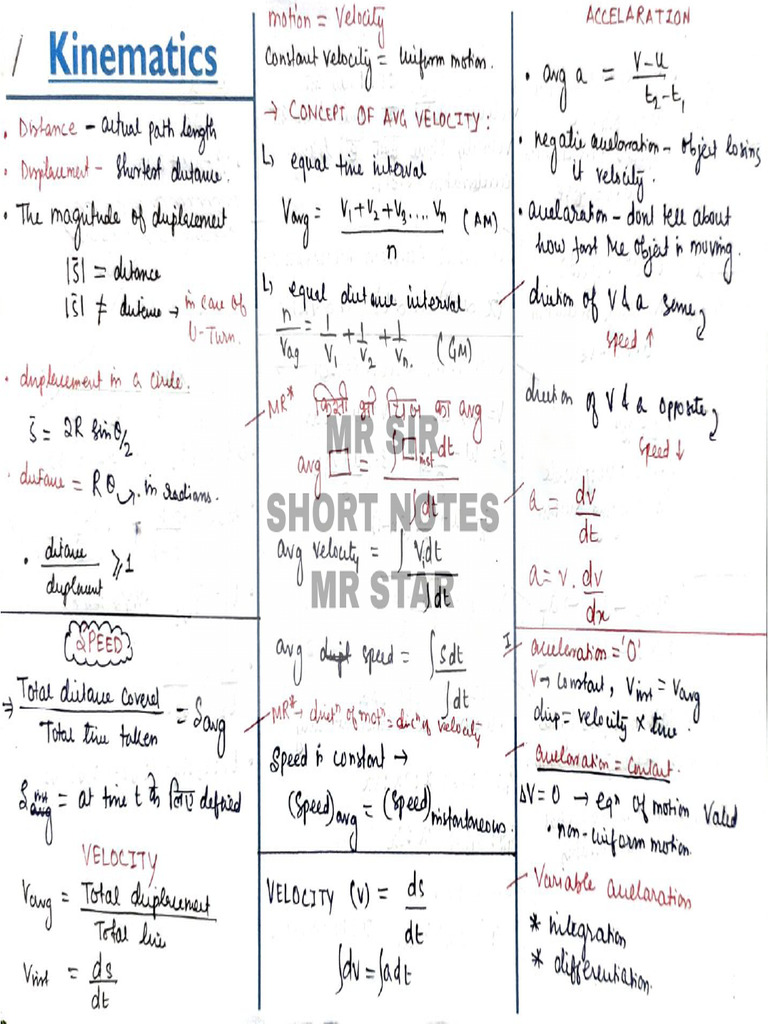 1 Kinematics
• Distance – actual path length
• Displacement – Shortest distance.
• The magnitude of displacement
|s̄| = distance
|s̄| ≠ distance → in case of
U-Turn.
• displacement in a circle.
s̄ = 2R sin θ/2
• distance = Rθ → in radians.
• distance / displacement ≥ 1
SPEED
⇒ Total distance covered / Total time taken = Savg
Sinst = at time t के लिए defined
VELOCITY
Vavg = Total displacement / Total time
Vinst = ds/dt
motion = Velocity
Constant velocity = Uniform motion.
→ CONCEPT OF AVG VELOCITY :
↳ equal time interval
Vavg = V1 + V2 + V3 .... Vn / n (AM)
↳ equal distance interval
n/Vavg = 1/V1 + 1/V2 + 1/Vn. (GM)
MR* किसी भी चिज का avg
avg □ = ∫□inst dt / ∫dt
avg velocity = ∫ Vdt / ∫dt
avg speed = ∫ Sdt / ∫dt
MR* → direcⁿ of motⁿ = direcⁿ of velocity
Speed is constant →
(Speed)avg = (Speed)instantaneous.
VELOCITY (V) = ds/dt
∫dv = ∫adt
ACCELARATION
• avg a = V – U / t2 – t1
• negative acceleration – object losing
it velocity.
• accelaration – dont tell about
how fast the object is moving.
direction of V & a same
speed ↑
direction of V & a opposite
speed ↓
a = dv/dt
a = v . dv/dx
I acceleration = '0'
V → constant, Vinst = Vavg
disp = velocity × time.
acceleration = constant.
ΔV = 0 → eqⁿ of motion valid
• non-uniform motion.
Variable accelaration
* integration
* differentiation.
MR SIR
SHORT NOTES
MR STAR